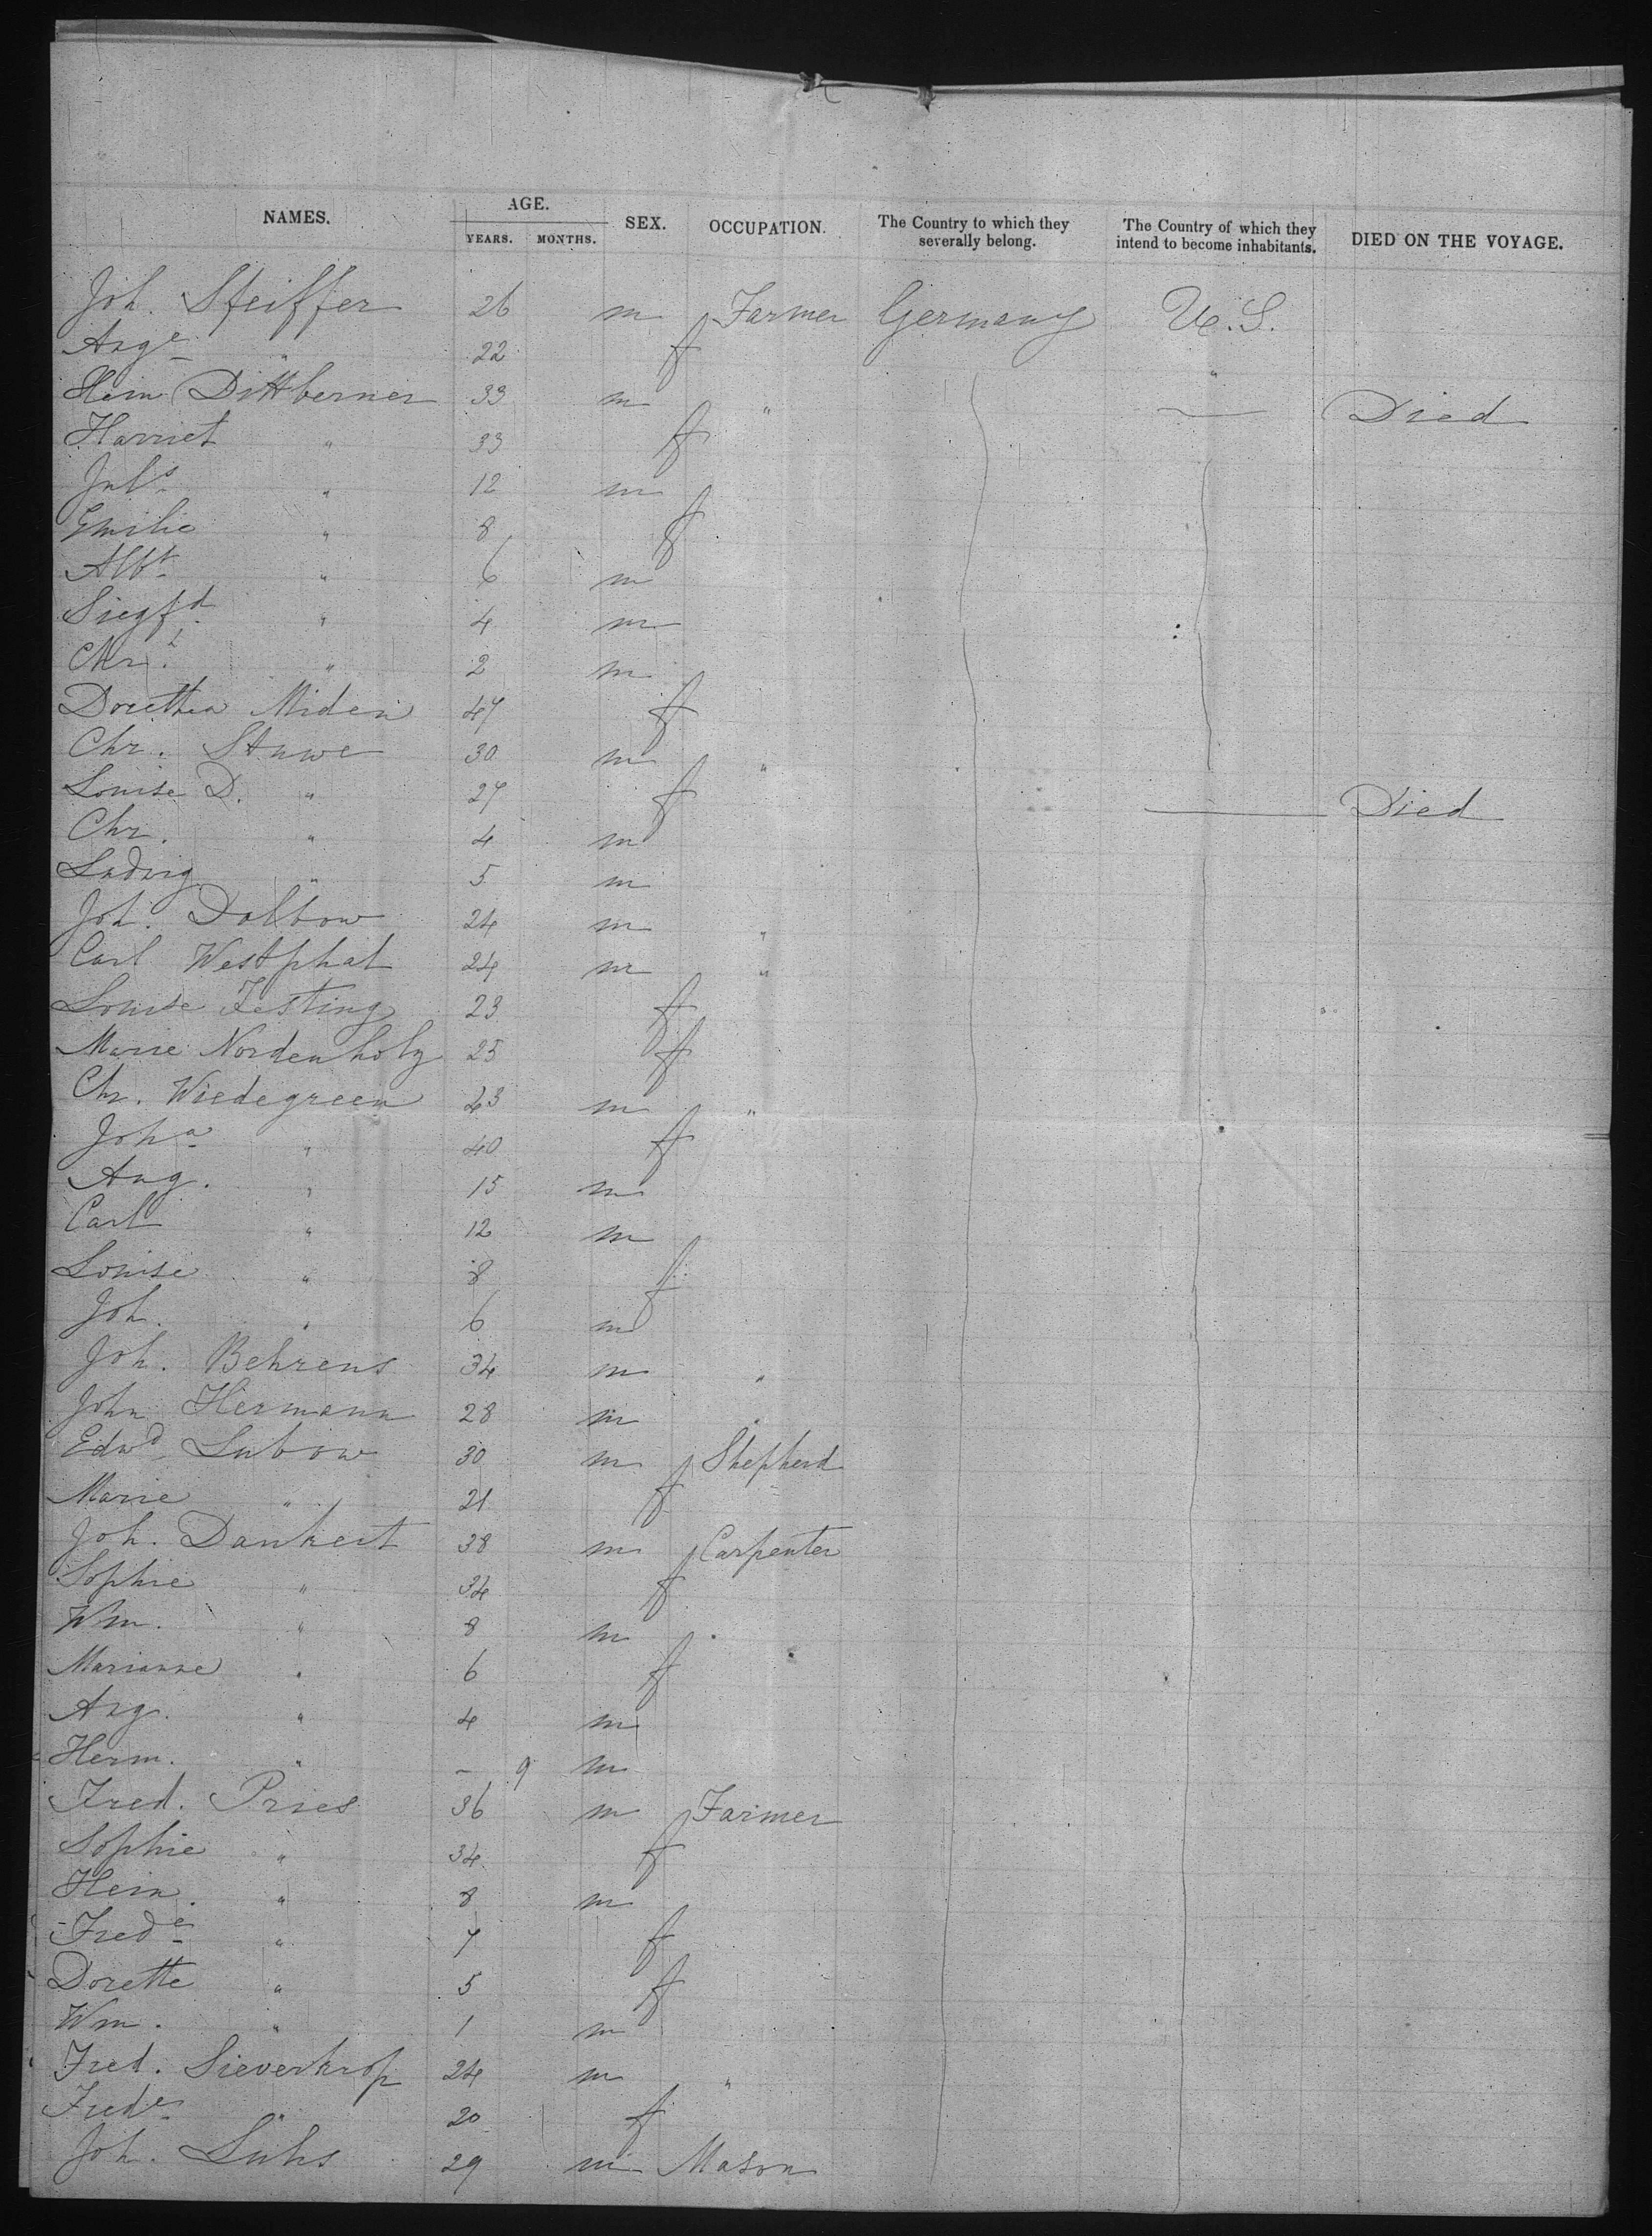 NAMES. AGE. YEARS. MONTHS. SEX. OCCUPATION. The Country to which they severally belong. The Country of which they intend to become inhabitants. DIED ON THE VOYAGE.
Joh. Steiffer 26 m Farmer Germany U.S.
Auge " 22 f "
Hein Dittberner 33 m " Died
Harriet " 33 f
Juls " 12 m
Emilie " 8 f
Albt " 6 m
Siegfd " 4 m
Chr. " 2 m
Dorethea Miden 47 f
Chr. Stuwe 30 m "
Louise D. " 27 f Died
Chr. " 4 m
Ludwig " 5 m
Joh. Dalbow 24 m "
Carl Westphal 24 m "
Louise Testing 23 f
Marie Nordenholz 25 f
Chr. Wiedegreen 43 m "
Joha " 40 f
Aug. " 15 m
Carl " 12 m
Louise " 8 f
Joh. " 6 m
Joh. Behrens 34 m "
John Hermann 28 m "
Edwd Lubow 30 m Shepherd
Marie " 21 f
Joh. Dankert 38 m Carpenter
Sophie " 34 f
Wm. " 8 m
Marianne " 6 f
Aug. " 4 m
Herm. " - 9 m
Fred. Pries 36 m Farmer
Sophie " 34 f
Hein. " 8 m
Frede " 7 f
Dorette " 5 f
Wm. " 1 m
Fred. Sieverkrop 24 m "
Frede " 20 f
Joh. Luhs 29 m Mason